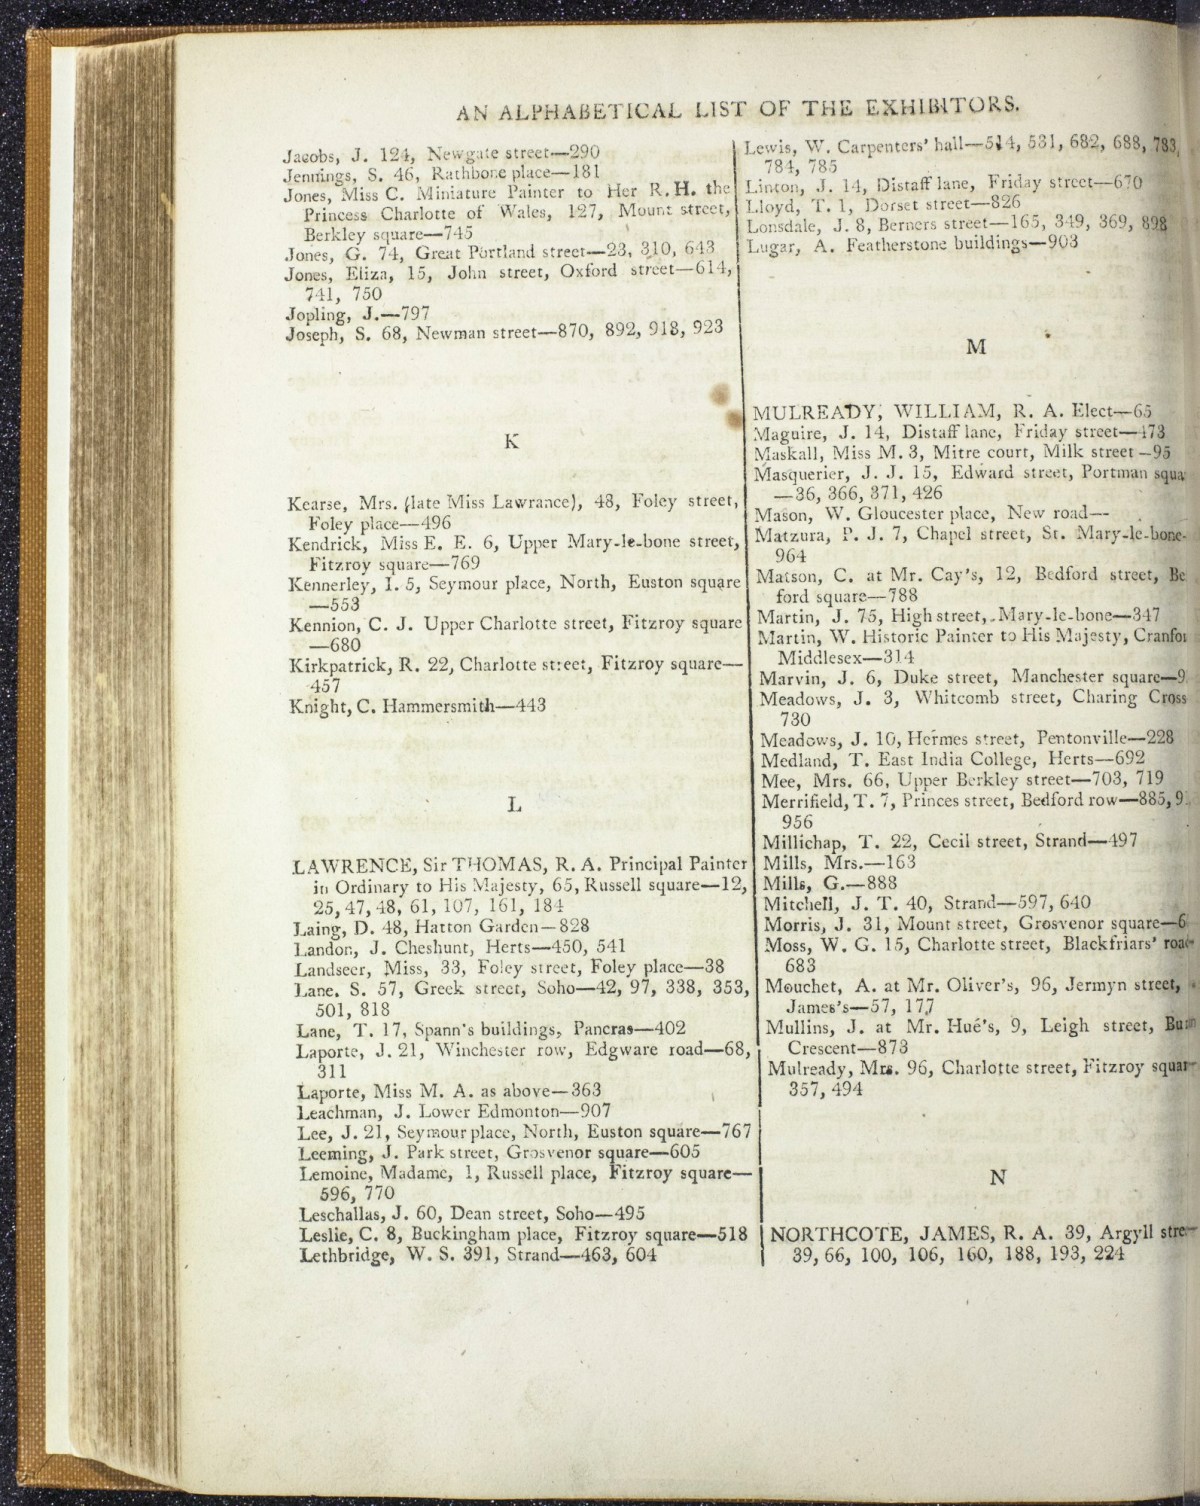 AN ALPHABETICAL LIST OF THE EXHIBITORS.
Jacobs, J. 124, Newgate street—290
Jennings, S. 46, Rathbone place—181
Jones, Miss C. Miniature Painter to Her R. H. the
Princess Charlotte of Wales, 127, Mount street,
Berkley square—745
Jones, G. 74, Great Portland street—23, 310, 643
Jones, Eliza, 15, John street, Oxford street—614,
741, 750
Jopling, J.—797
Joseph, S. 68, Newman street—870, 892, 918, 923
K
Kearse, Mrs. (late Miss Lawrance), 48, Foley street,
Foley place—496
Kendrick, Miss E. E. 6, Upper Mary-le-bone street,
Fitzroy square—769
Kennerley, I. 5, Seymour place, North, Euston square
—553
Kennion, C. J. Upper Charlotte street, Fitzroy square
—680
Kirkpatrick, R. 22, Charlotte street, Fitzroy square—
457
Knight, C. Hammersmith—443
L
LAWRENCE, Sir THOMAS, R. A. Principal Painter
in Ordinary to His Majesty, 65, Russell square—12,
25, 47, 48, 61, 107, 161, 184
Laing, D. 48, Hatton Garden—828
Landon, J. Cheshunt, Herts—450, 541
Landseer, Miss, 33, Foley street, Foley place—38
Lane. S. 57, Greek street, Soho—42, 97, 338, 353,
501, 818
Lane, T. 17, Spann's buildings, Pancras—402
Laporte, J. 21, Winchester row, Edgware road—68,
311
Laporte, Miss M. A. as above—363
Leachman, J. Lower Edmonton—907
Lee, J. 21, Seymour place, North, Euston square—767
Leeming, J. Park street, Grosvenor square—605
Lemoine, Madame, 1, Russell place, Fitzroy square—
596, 770
Leschallas, J. 60, Dean street, Soho—495
Leslie, C. 8, Buckingham place, Fitzroy square—518
Lethbridge, W. S. 391, Strand—463, 604
Lewis, W. Carpenters' hall—514, 531, 682, 688, 783,
784, 785
Linton, J. 14, Distaff lane, Friday street—670
Lloyd, T. 1, Dorset street—826
Lonsdale, J. 8, Berners street—165, 349, 369, 898
Lugar, A. Featherstone buildings—903
M
MULREADY, WILLIAM, R. A. Elect—65
Maguire, J. 14, Distaff lane, Friday street—173
Maskall, Miss M. 3, Mitre court, Milk street—95
Masquerier, J. J. 15, Edward street, Portman squa
—36, 366, 371, 426
Mason, W. Gloucester place, New road—
Matzura, P. J. 7, Chapel street, St. Mary-le-bone-
964
Matson, C. at Mr. Cay's, 12, Bedford street, Be
ford square—788
Martin, J. 75, High street, Mary-le-bone—347
Martin, W. Historic Painter to His Majesty, Cranfor
Middlesex—314
Marvin, J. 6, Duke street, Manchester square—9
Meadows, J. 3, Whitcomb street, Charing Cross
730
Meadows, J. 10, Hermes street, Pentonville—228
Medland, T. East India College, Herts—692
Mee, Mrs. 66, Upper Berkley street—703, 719
Merrifield, T. 7, Princes street, Bedford row—885, 9
956
Millichap, T. 22, Cecil street, Strand—497
Mills, Mrs.—163
Mills, G.—888
Mitchell, J. T. 40, Strand—597, 640
Morris, J. 31, Mount street, Grosvenor square—6
Moss, W. G. 15, Charlotte street, Blackfriars' road
683
Mouchet, A. at Mr. Oliver's, 96, Jermyn street,
James's—57, 177
Mullins, J. at Mr. Hué's, 9, Leigh street, Burn
Crescent—873
Mulready, Mrs. 96, Charlotte street, Fitzroy squar
357, 494
N
NORTHCOTE, JAMES, R. A. 39, Argyll stre
39, 66, 100, 106, 160, 188, 193, 224